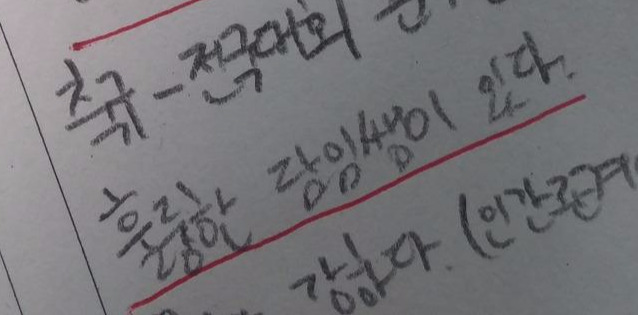 축구-전국대회
훌륭한 담임쌤이 있다.
강하다. (인간관계